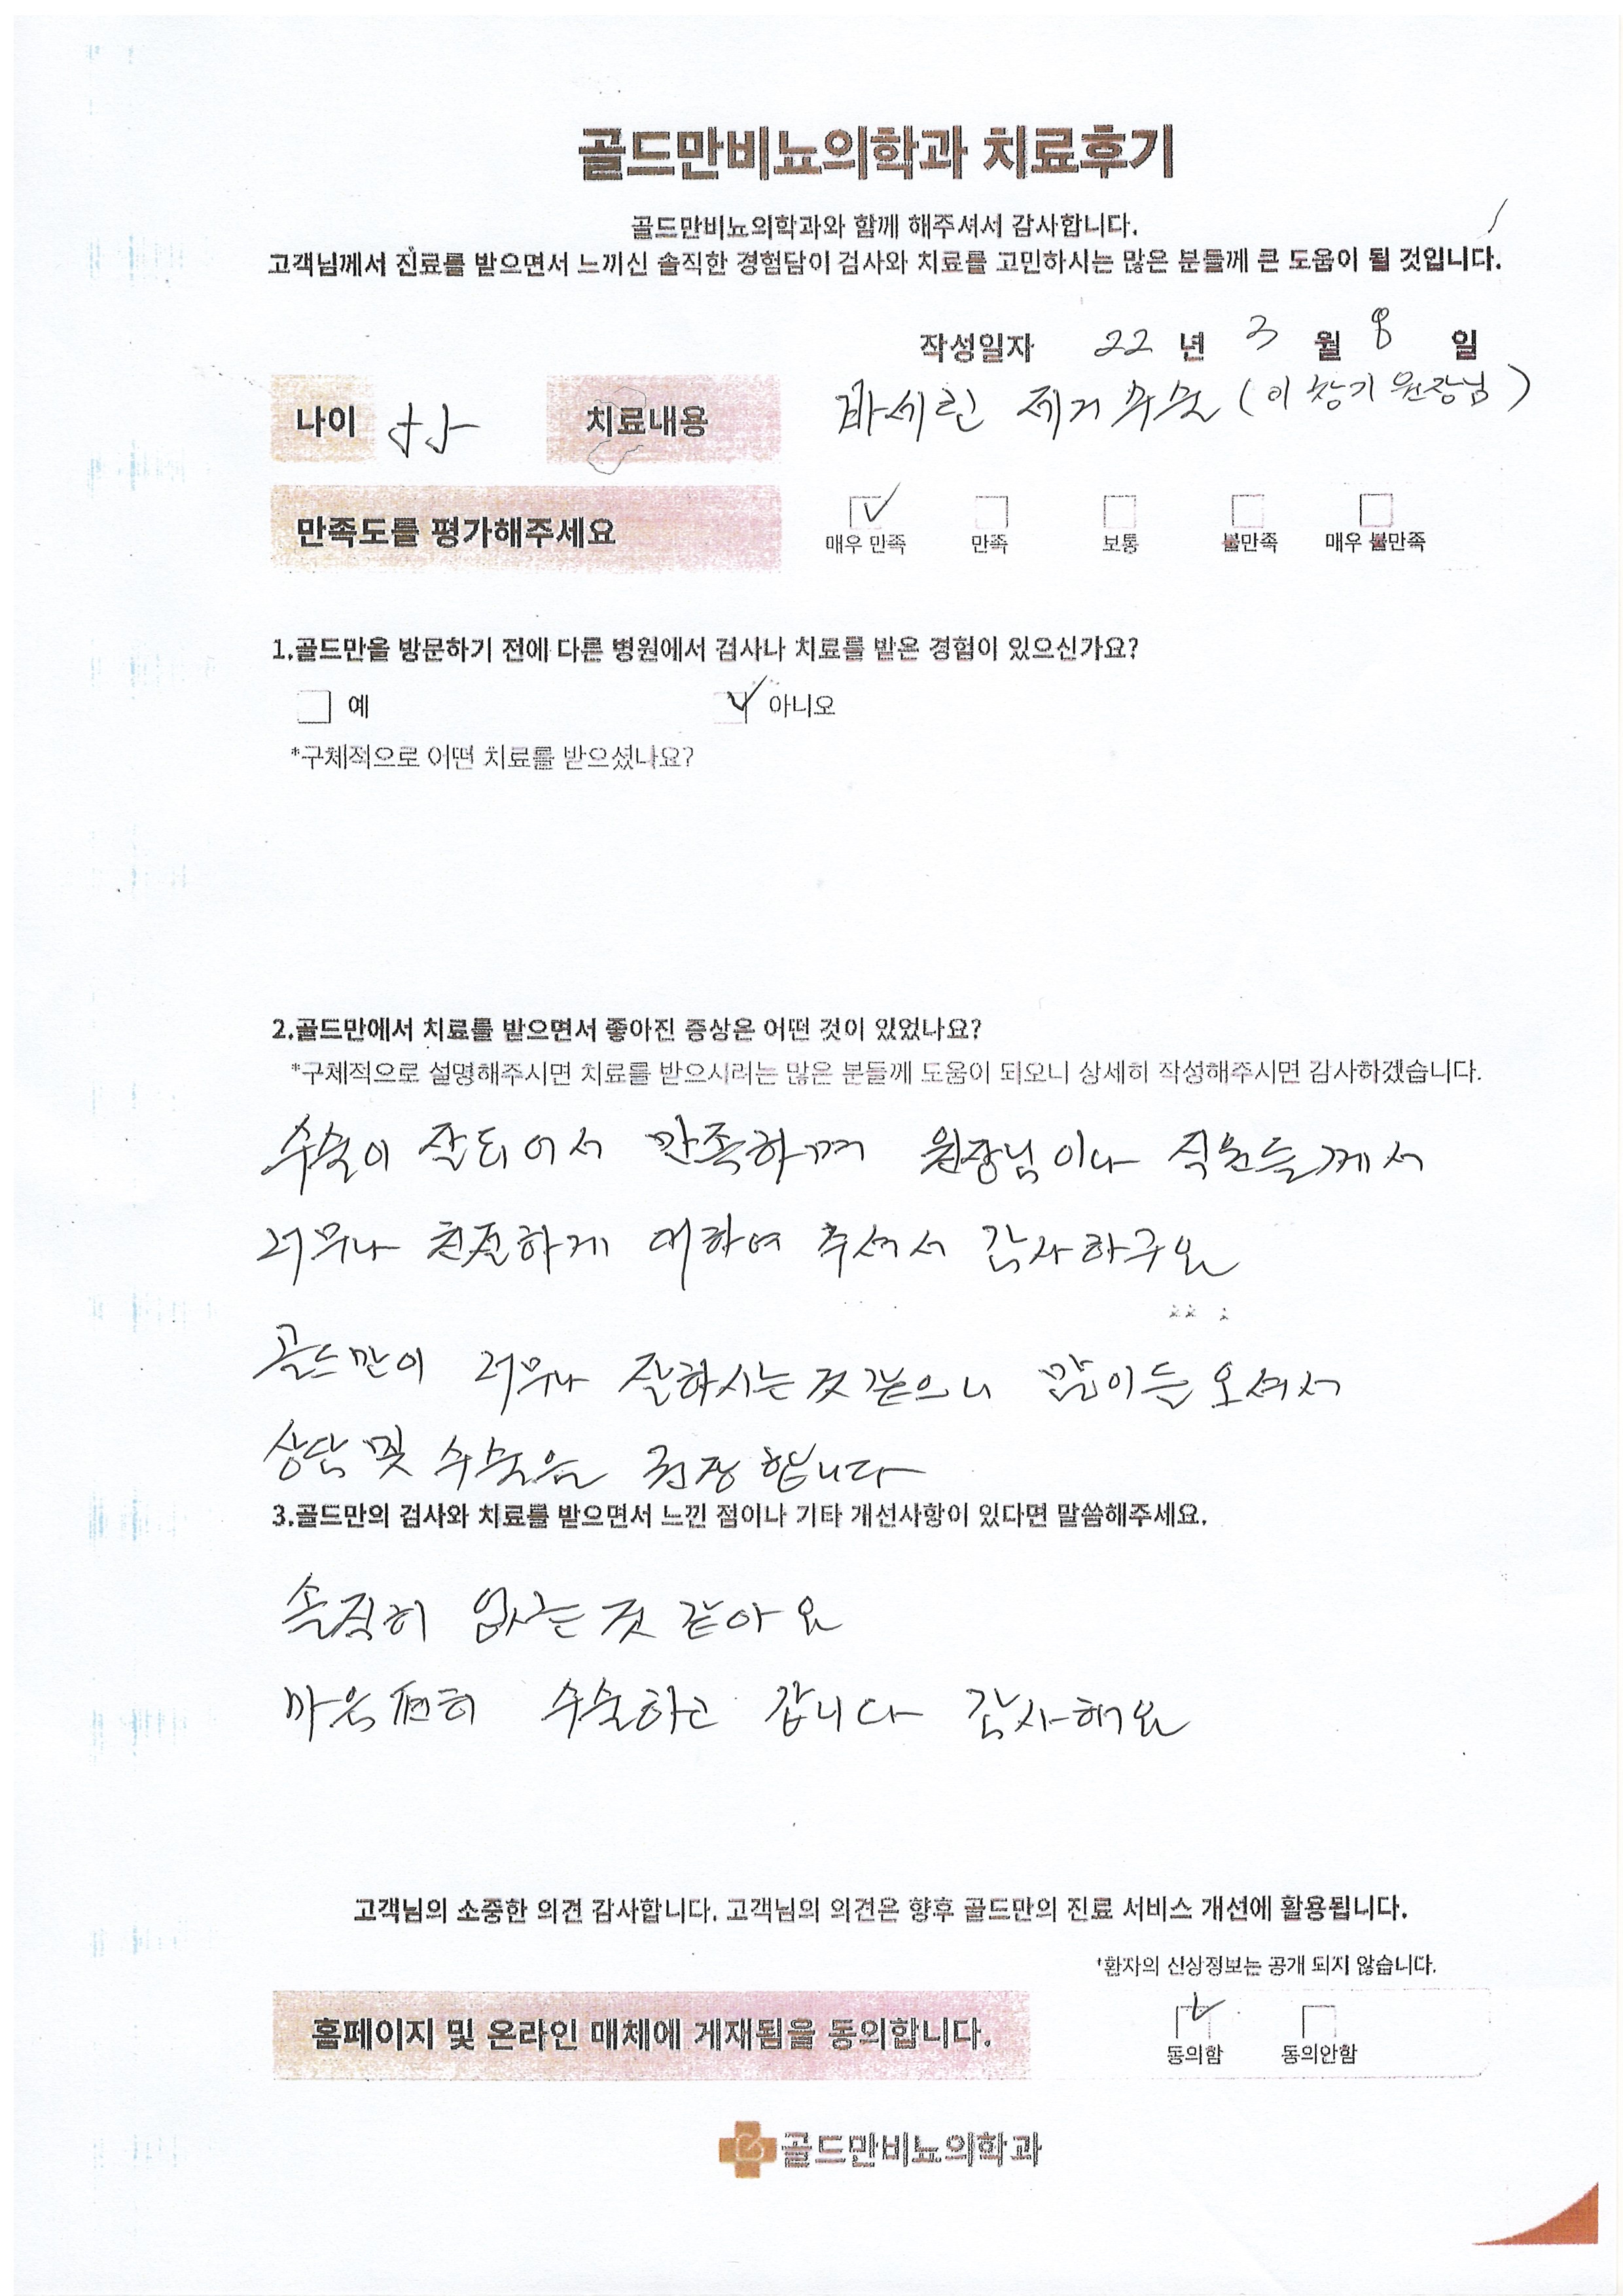 골드만비뇨의학과 치료후기
골드만비뇨의학과와 함께 해주셔서 감사합니다.
고객님께서 진료를 받으면서 느끼신 솔직한 경험담이 검사와 치료를 고민하시는 많은 분들께 큰 도움이 될 것입니다.
작성일자 22 년 3 월 8 일
나이 치료내용 바세린 제거 수술 (이창기 원장님)
만족도를 평가해주세요
매우 만족 만족 보통 불만족 매우 불만족
1.골드만을 방문하기 전에 다른 병원에서 검사나 치료를 받은 경험이 있으신가요?
예 아니오
*구체적으로 어떤 치료를 받으셨나요?
2.골드만에서 치료를 받으면서 좋아진 증상은 어떤 것이 있었나요?
*구체적으로 설명해주시면 치료를 받으시려는 많은 분들께 도움이 되오니 상세히 작성해주시면 감사하겠습니다.
수술이 잘되어서 만족하며 원장님이나 직원들께서
너무나 친절하게 대하여 주셔서 감사하구요
골드만이 너무나 잘하시는것 같으니 많이들 오셔서
상담 및 수술을 권장 합니다
3.골드만의 검사와 치료를 받으면서 느낀 점이나 기타 개선사항이 있다면 말씀해주세요.
솔직히 없는 것 같아요
마음 편히 수술하고 갑니다 감사해요
고객님의 소중한 의견 감사합니다. 고객님의 의견은 향후 골드만의 진료 서비스 개선에 활용됩니다.
*환자의 신상정보는 공개 되지 않습니다.
홈페이지 및 온라인 매체에 게재됨을 동의합니다.
동의함 동의안함
골드만비뇨의학과